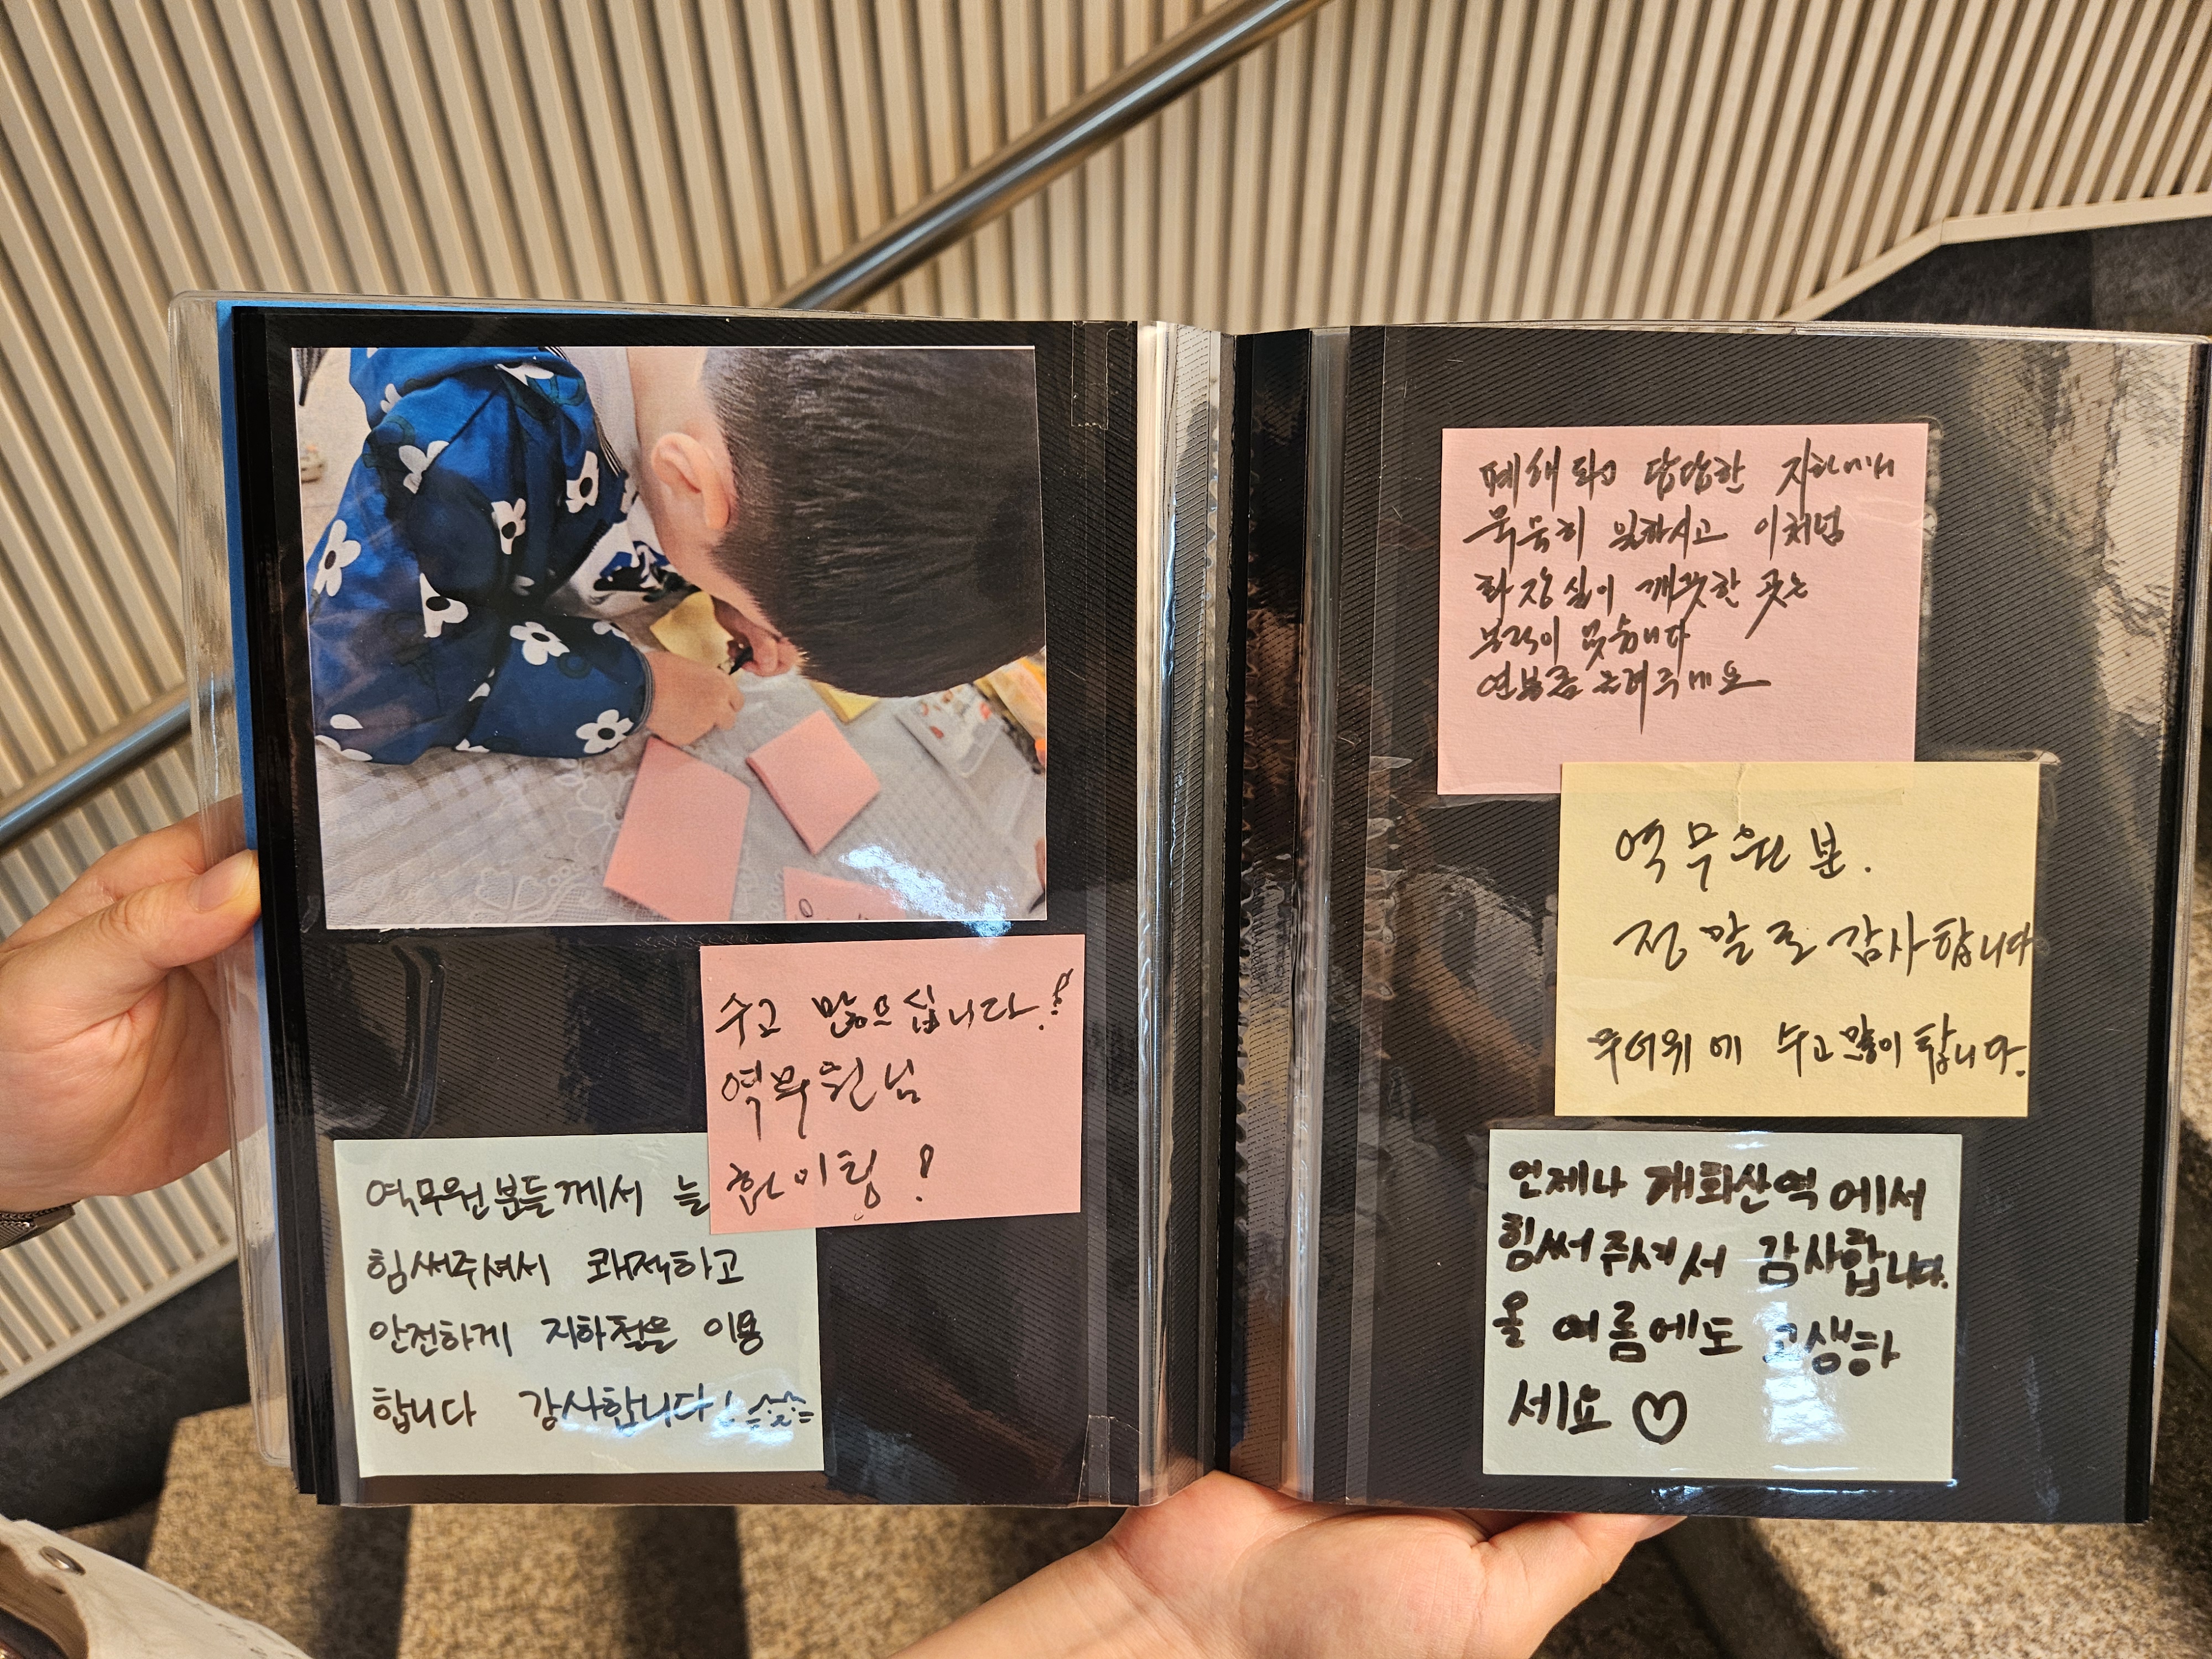 수고 많으십니다!
역무원님
화이팅!
역무원분들께서 늘
힘써주셔서 쾌적하고
안전하게 지하철을 이용
합니다 감사합니다!
답답한 지하에서
묵묵히 일하시고 이처럼
화장실이 깨끗한 곳는
없습니다
연봉좀 올려주세요
역무원분.
정말로 감사합니다
무더위에 수고많이 합니다.
언제나 개화산역에서
힘써주셔서 감사합니다.
올 여름에도 고생하
세요 ♡